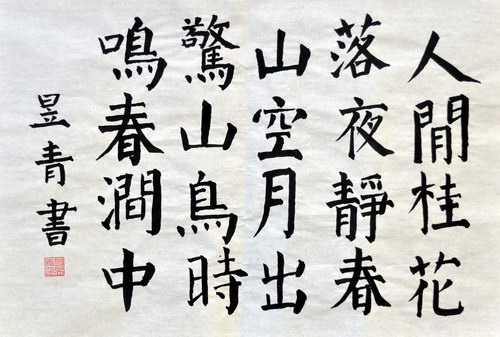 人閒桂花
落夜靜春
山空月出
驚山鳥時
鳴春澗中
昱青書